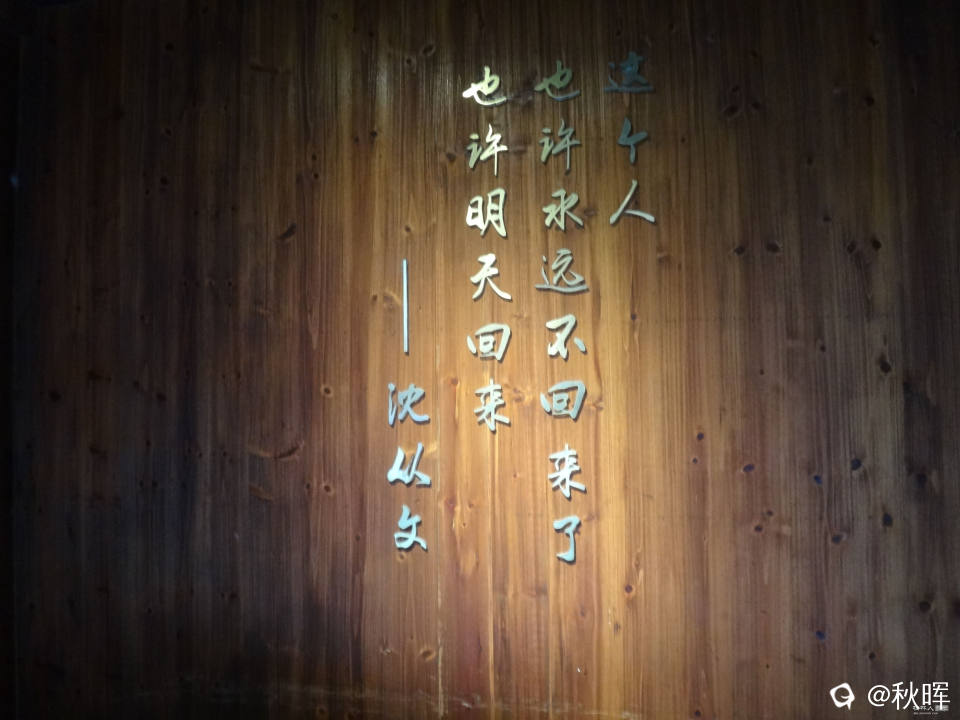 这个人
也许永远不回来了
也许明天回来
——沈从文
@秋晖